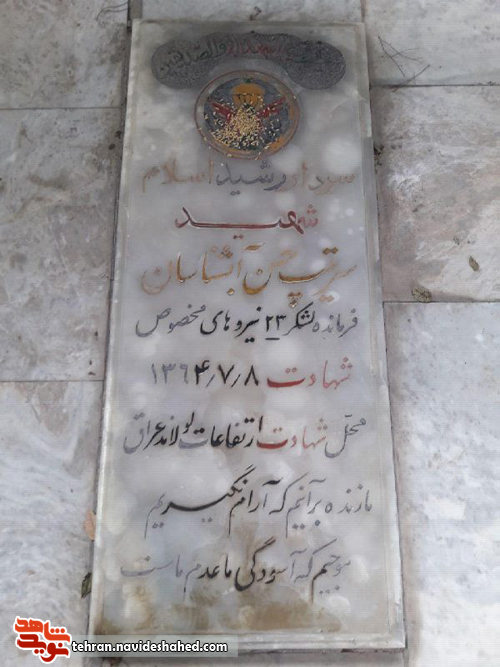 سردار رشید اسلام
شهید
سرتیپ حسن آبشناسان
فرمانده لشکر ۲۳ نیروهای مخصوص
شهادت ۱۳۶۴٫۷٫۸
محل شهادت ارتفاعات لولاندعراق
ما زنده برآنیم که آرام نگیریم
موجیم که آسودگی ما عدم ماست
شاهد
نوید
tehran.navideshahed.com